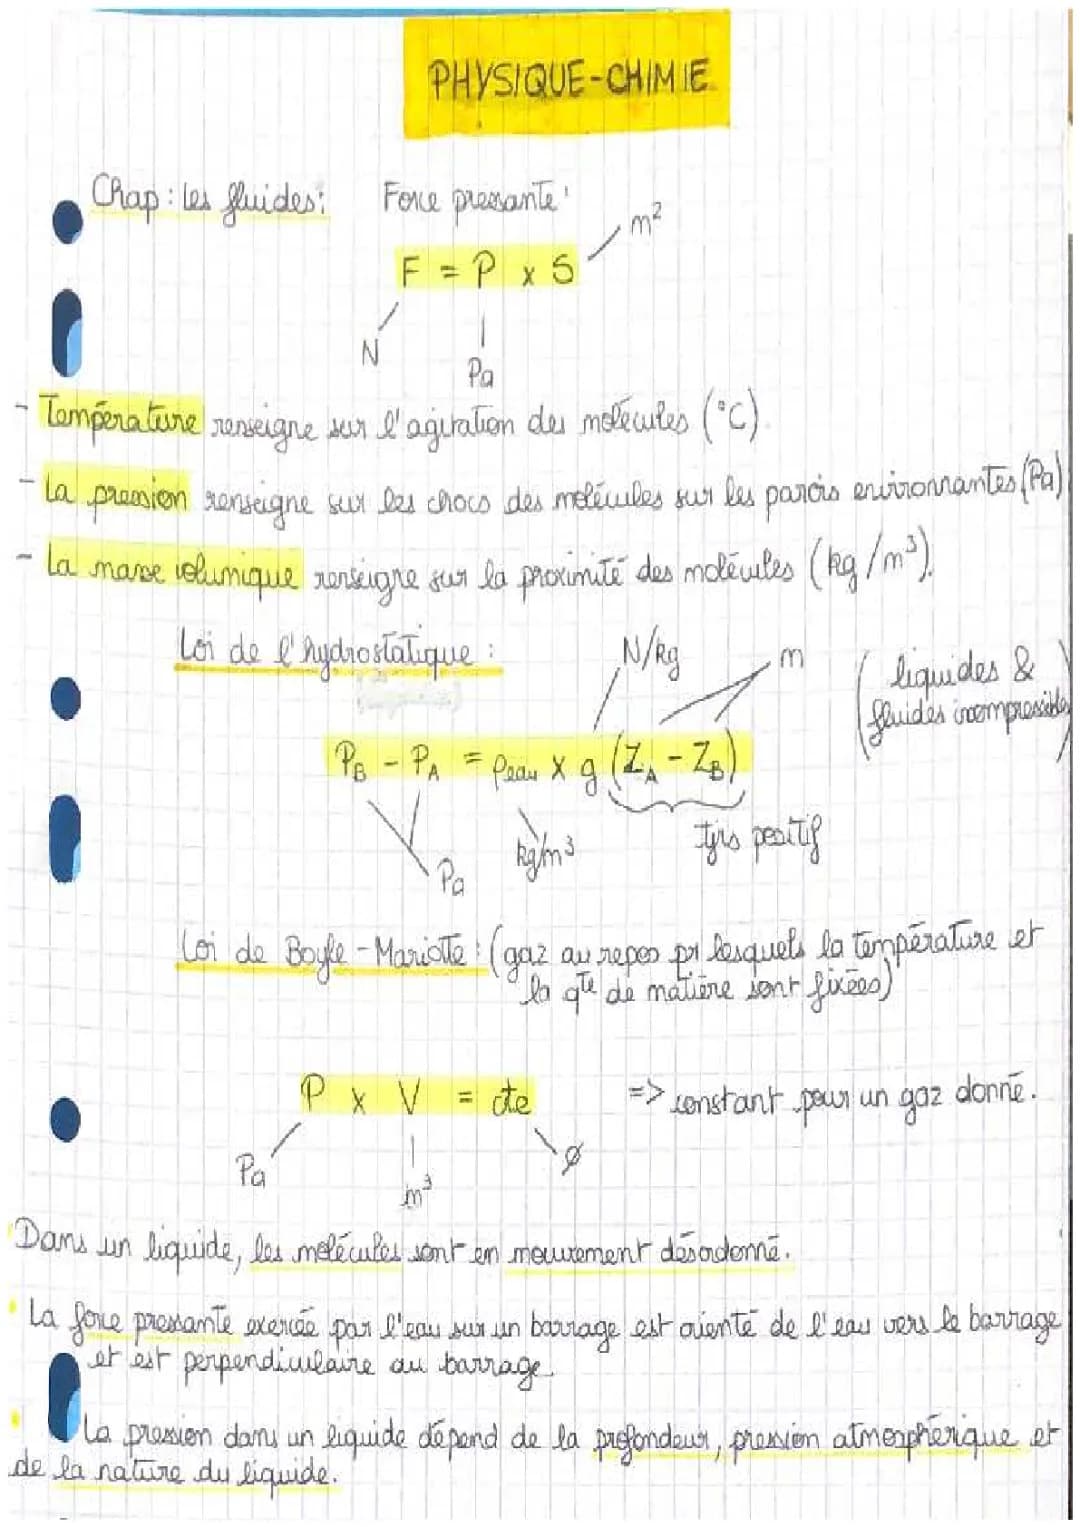 PHYSIQUE-CHIMIE
Chap : les fluides : Force pressante :
m²
F = P x S
N
Pa
- Température renseigne sur l'agitation des molécules (°C).
- La pression renseigne sur les chocs des molécules sur les parois environnantes (Pa)
- La masse volumique renseigne sur la proximité des molécules (kg/m³).
Loi de l'hydrostatique :
N/kg
m
(liquides &
fluides incompressibles)
P_B - P_A = ρeau x g (Z_A - Z_B)
kg/m³
tjrs positif
Pa
Loi de Boyle - Mariotte : (gaz au repos pr lesquels la température et
la qte de matière sont fixées)
P x V = cte => constant pour un gaz donné.
Pa
m³
ø
Dans un liquide, les molécules sont en mouvement désordonné.
La force pressante exercée par l'eau sur un barrage est orienté de l'eau vers le barrage
et est perpendiculaire au barrage.
La pression dans un liquide dépend de la profondeur, pression atmosphérique et
de la nature du liquide.